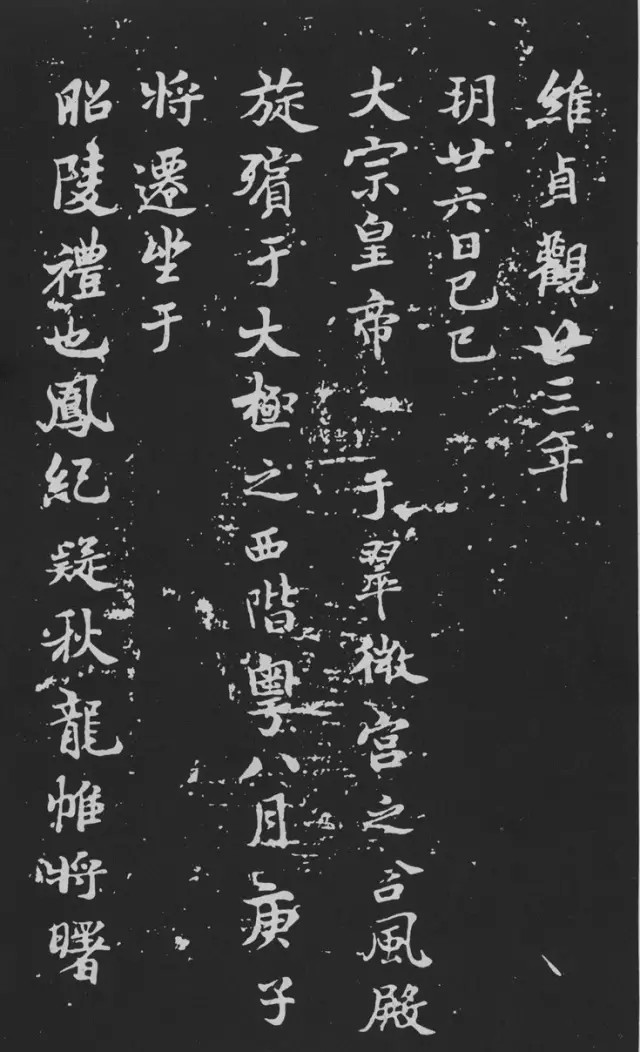 維貞觀廿三年
玥廿六日己巳
大宗皇帝于翠微宮之含風殿
旋殯于大極之西階粵八月庚子
将遷坐于
昭陵禮也鳳紀疑秋龍帷将曙